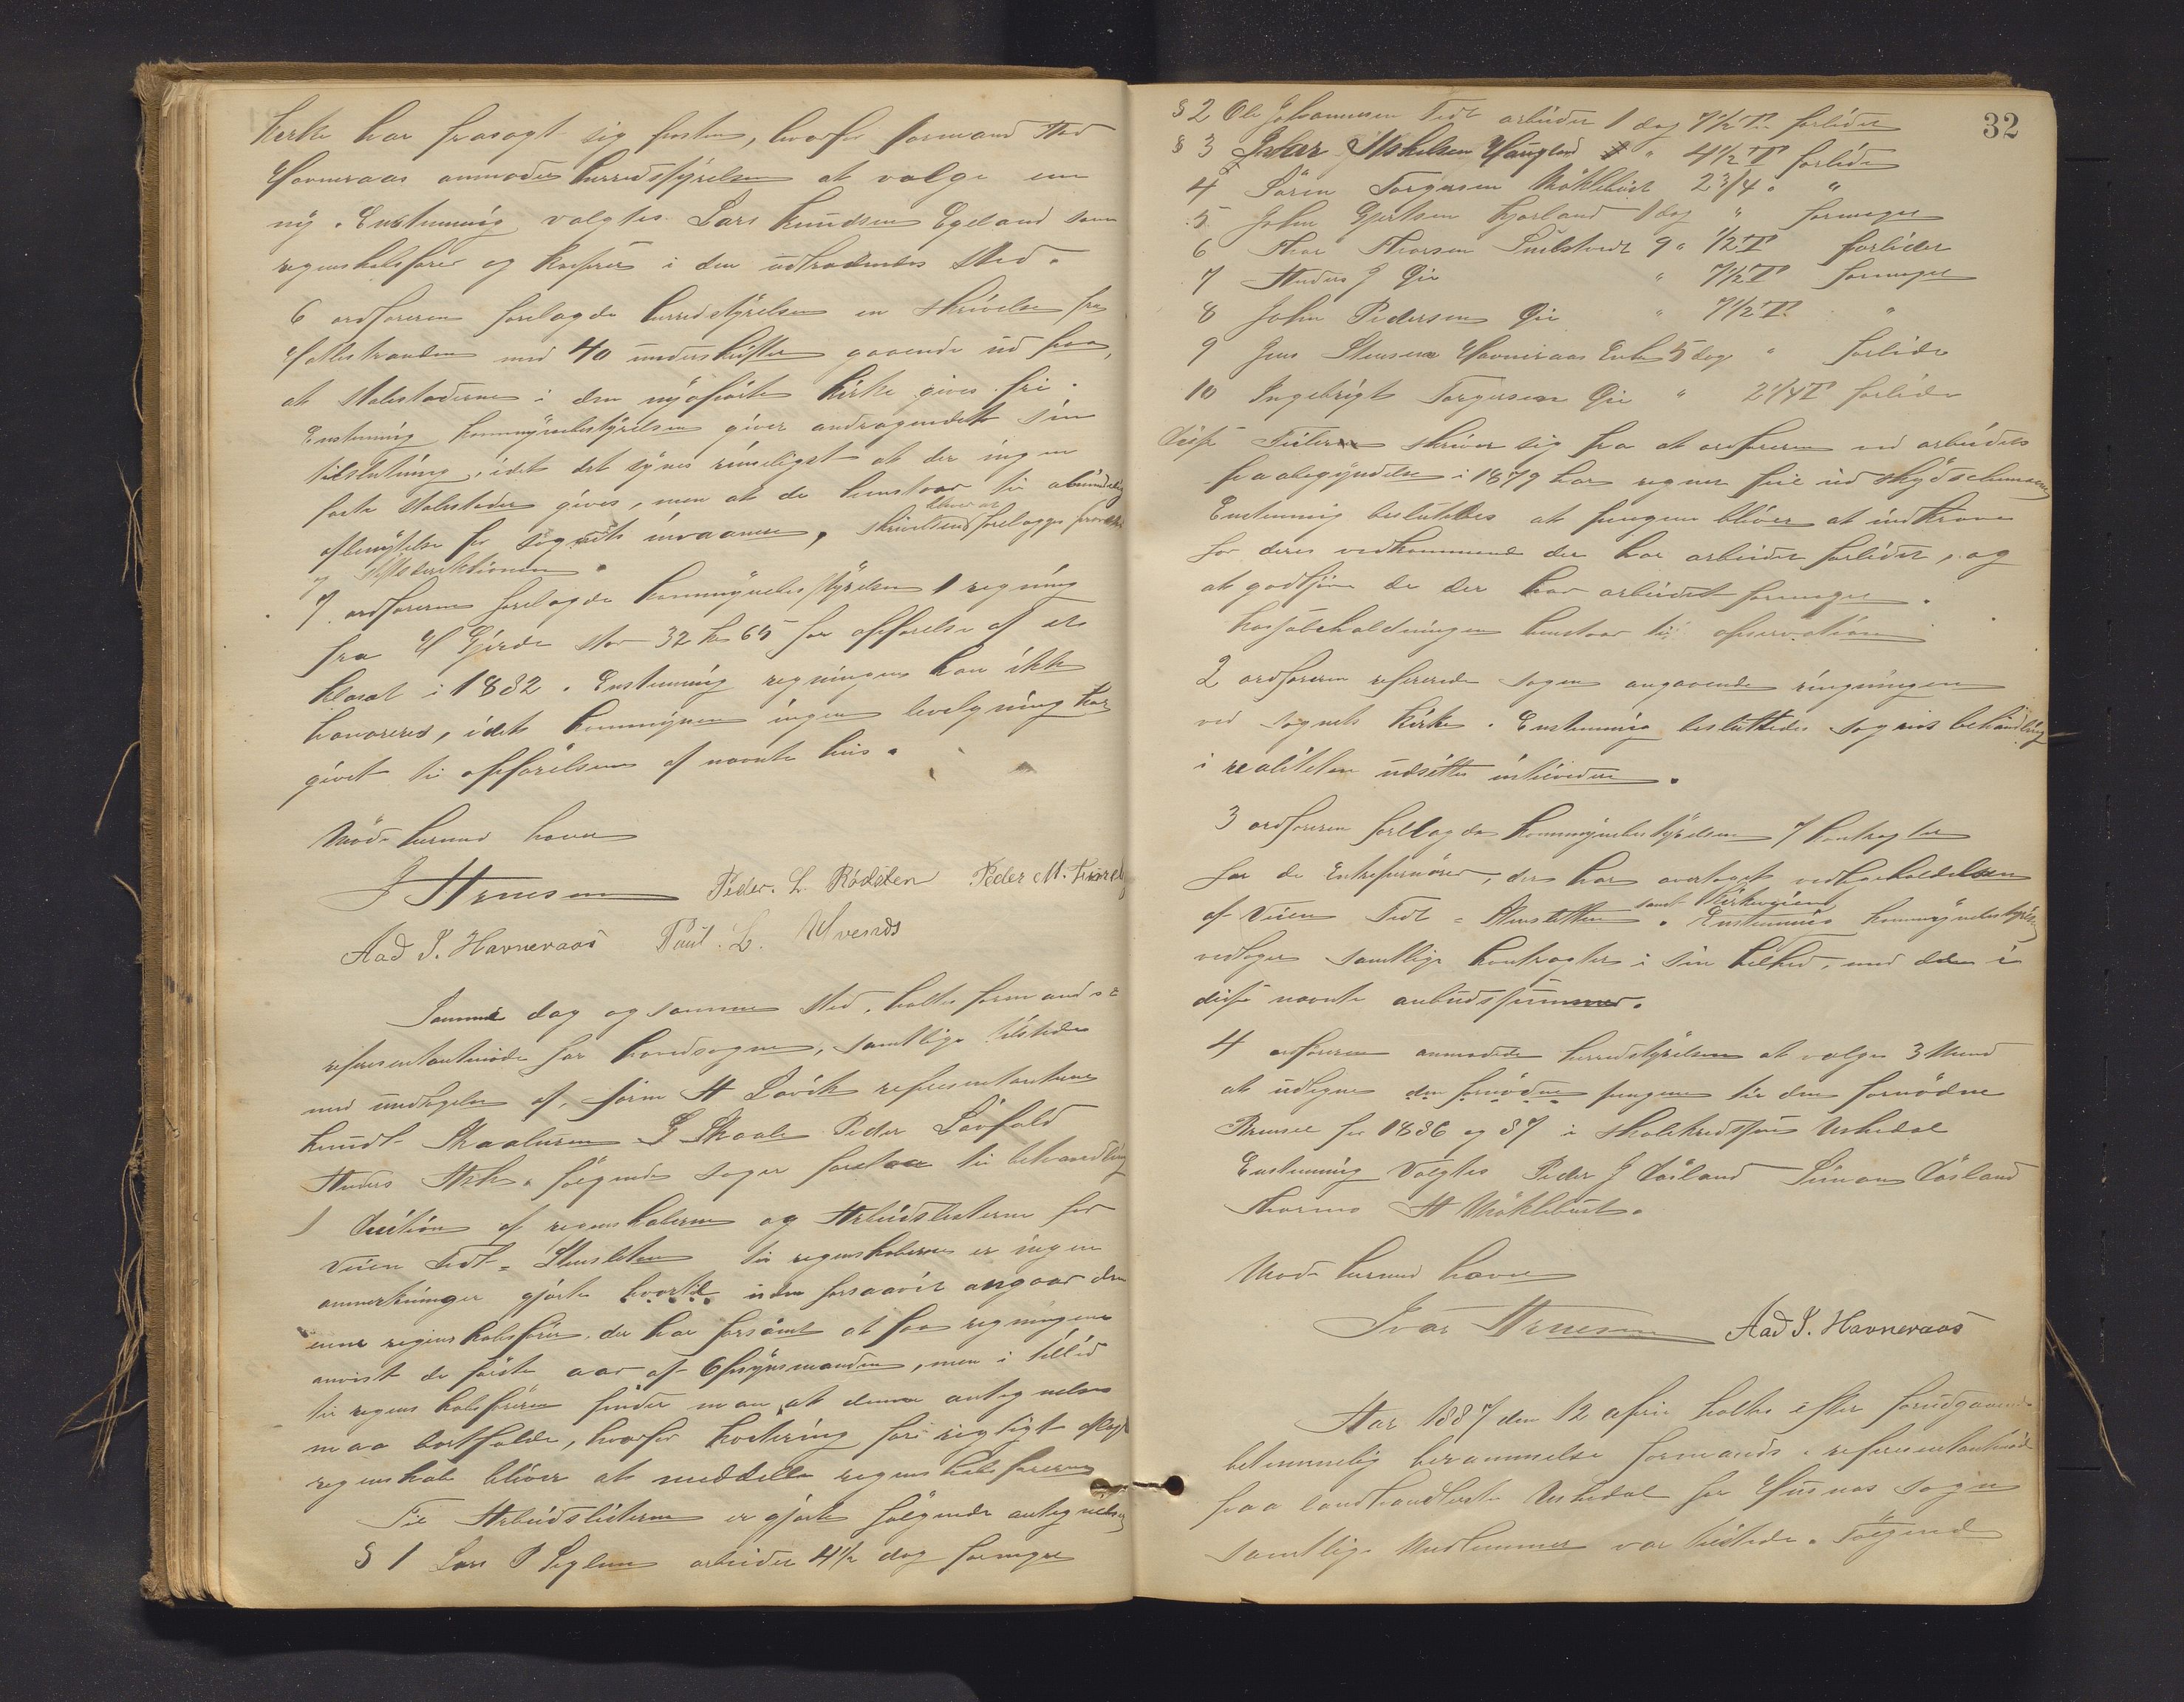 Kirke har frasagt sig posten, hvorfor formand Aad
Havneraas anmoder herredsstyrelsen at vælge en
ny. Enstemmig valgtes Lars Knudsen Egeland som
regnskabsfører og kasserer i den udtrædendes sted.
6 ordføreren forelagde herredstyrelsen en skrivelse fra
med 40 underskrifter gaaende ud paa,
at Stolestaderne i den nyopførte Kirke gives fri.
Enstemmig Kommunebestyrelsen giver andragendet sin
tilslutning, idet det synes rimeligst at der ingen
faste Stolestader gives, men at de henstaar til almindelig
afbenyttelse for Sognets invaanere, skrivelsen forelægges
og Stiftsdirektionen.
7 ordføreren forelagde Kommunebestyrelsen 1 regning
fra Gjerde stor 32 kr 65 for opførelse af et
Klosat i 1882. Enstemmig regningen kan ikke
honoreres, idet Kommunen ingen bevilgning har
givet til opførelsen af nævnte hus.
Møde herved hævet
J Arnesen Peder. L. Rödsten Peder M.
Aad J. Havneraas Paul. L.
Samme dag og samme sted, holtes formands =
representantmöde for hovedsognet, samtlige tilstede
med undtagelse af, form A Lavik representanterne
Knudt G Skaale Peder
Anders. følgende sager foretaes til behandling
1 af regnskaberne og Arbeidslisterne for
Veien Tedt = til regnskaberne er ingen
anmerkninger gjorte hvortil uden forsaavit angaar den
ene regnskabsfører, der har forsömt at faa regningene
anvist de første aar af Opsynsmanden, men i tillid
til regnskabsføreren finder man at denne antegnelse
maa bortfalde, hvorfor kvitering for rigtigt aflagt
regnskab bliver at meddelle regnskabsførerne
Til Arbeidslisterne er gjorte følgende antegnelser
§ 1 Lars P arbeidet 4 1/2 dag formeget
32
§ 2 Ole Johannesen Tedt arbeidet 1 dag 7 1/2 T. forlidet
§ 3 Haugland " 4 1/2 T forlidet
4 Sören Torgersen Möklebust 2 3/4 " "
5 John Gjertsen 1 dag " formeget
6 Thor Thorsen 9 " 1/2 T forlidet
7 Anders J Øie " 7 1/2 T formeget
8 John Pedersen Øie " 7 1/2 T. "
9 Jens Stensen Havneraas Enke 5 dag " forlidet
10 Ingebrigt Torgersen Øie " 2 1/4 T forlidet
Disse skriver sig fra at ordføreren ved arbeidets
paabegyndelse i 1879 har regnet feil
Enstemmig besluttedes at pengene bliver at indkræve
for deres vedkommende der har arbeidet forlidet, og
at godtgöre de der har arbeidet formeget.
Kassabeholdningen henstaar til
2 ordføreren refererede sagen angaaende ringningen
ved Sognets Kirke. Enstemmig besluttedes Sagens behandling
i realiteten udsættes indtil videre.
3 ordføreren forelagde Kommunebestyrelsen 7 kontragter
for de Entreprenører, der har overtaget vedligeholdelsen
af Veien Tedt = samt Kirkeveiene. Enstemmig Kommunebestyrelsen
vedtager samtlige Kontragter i sin helhed, med den i
disse nævnte anbudssummer.
4 ordføreren anmodede herredstyrelsen at vælge 3 Mend
at udligne den fornødne pengene til den fornødne
Brensel for 1886 og 87 i skolekredsen Uskedal
Enstemmig Valgtes Peder J Døsland Simon Døsland
Thormo A Möklebust.
Møde herved hævet
Ivar Arnesen Aad J. Havneraas
Aar 1887 den 12 april holtes efter forudgaaende
betimmelig berammelse formands = representantmöde
paa landhandlerste Uskedal for Husnæs sogn
samtlige Medlemmer var tilstede. Følgende